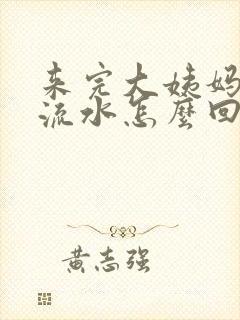 来完大姨妈
流水怎麽回
黄志强